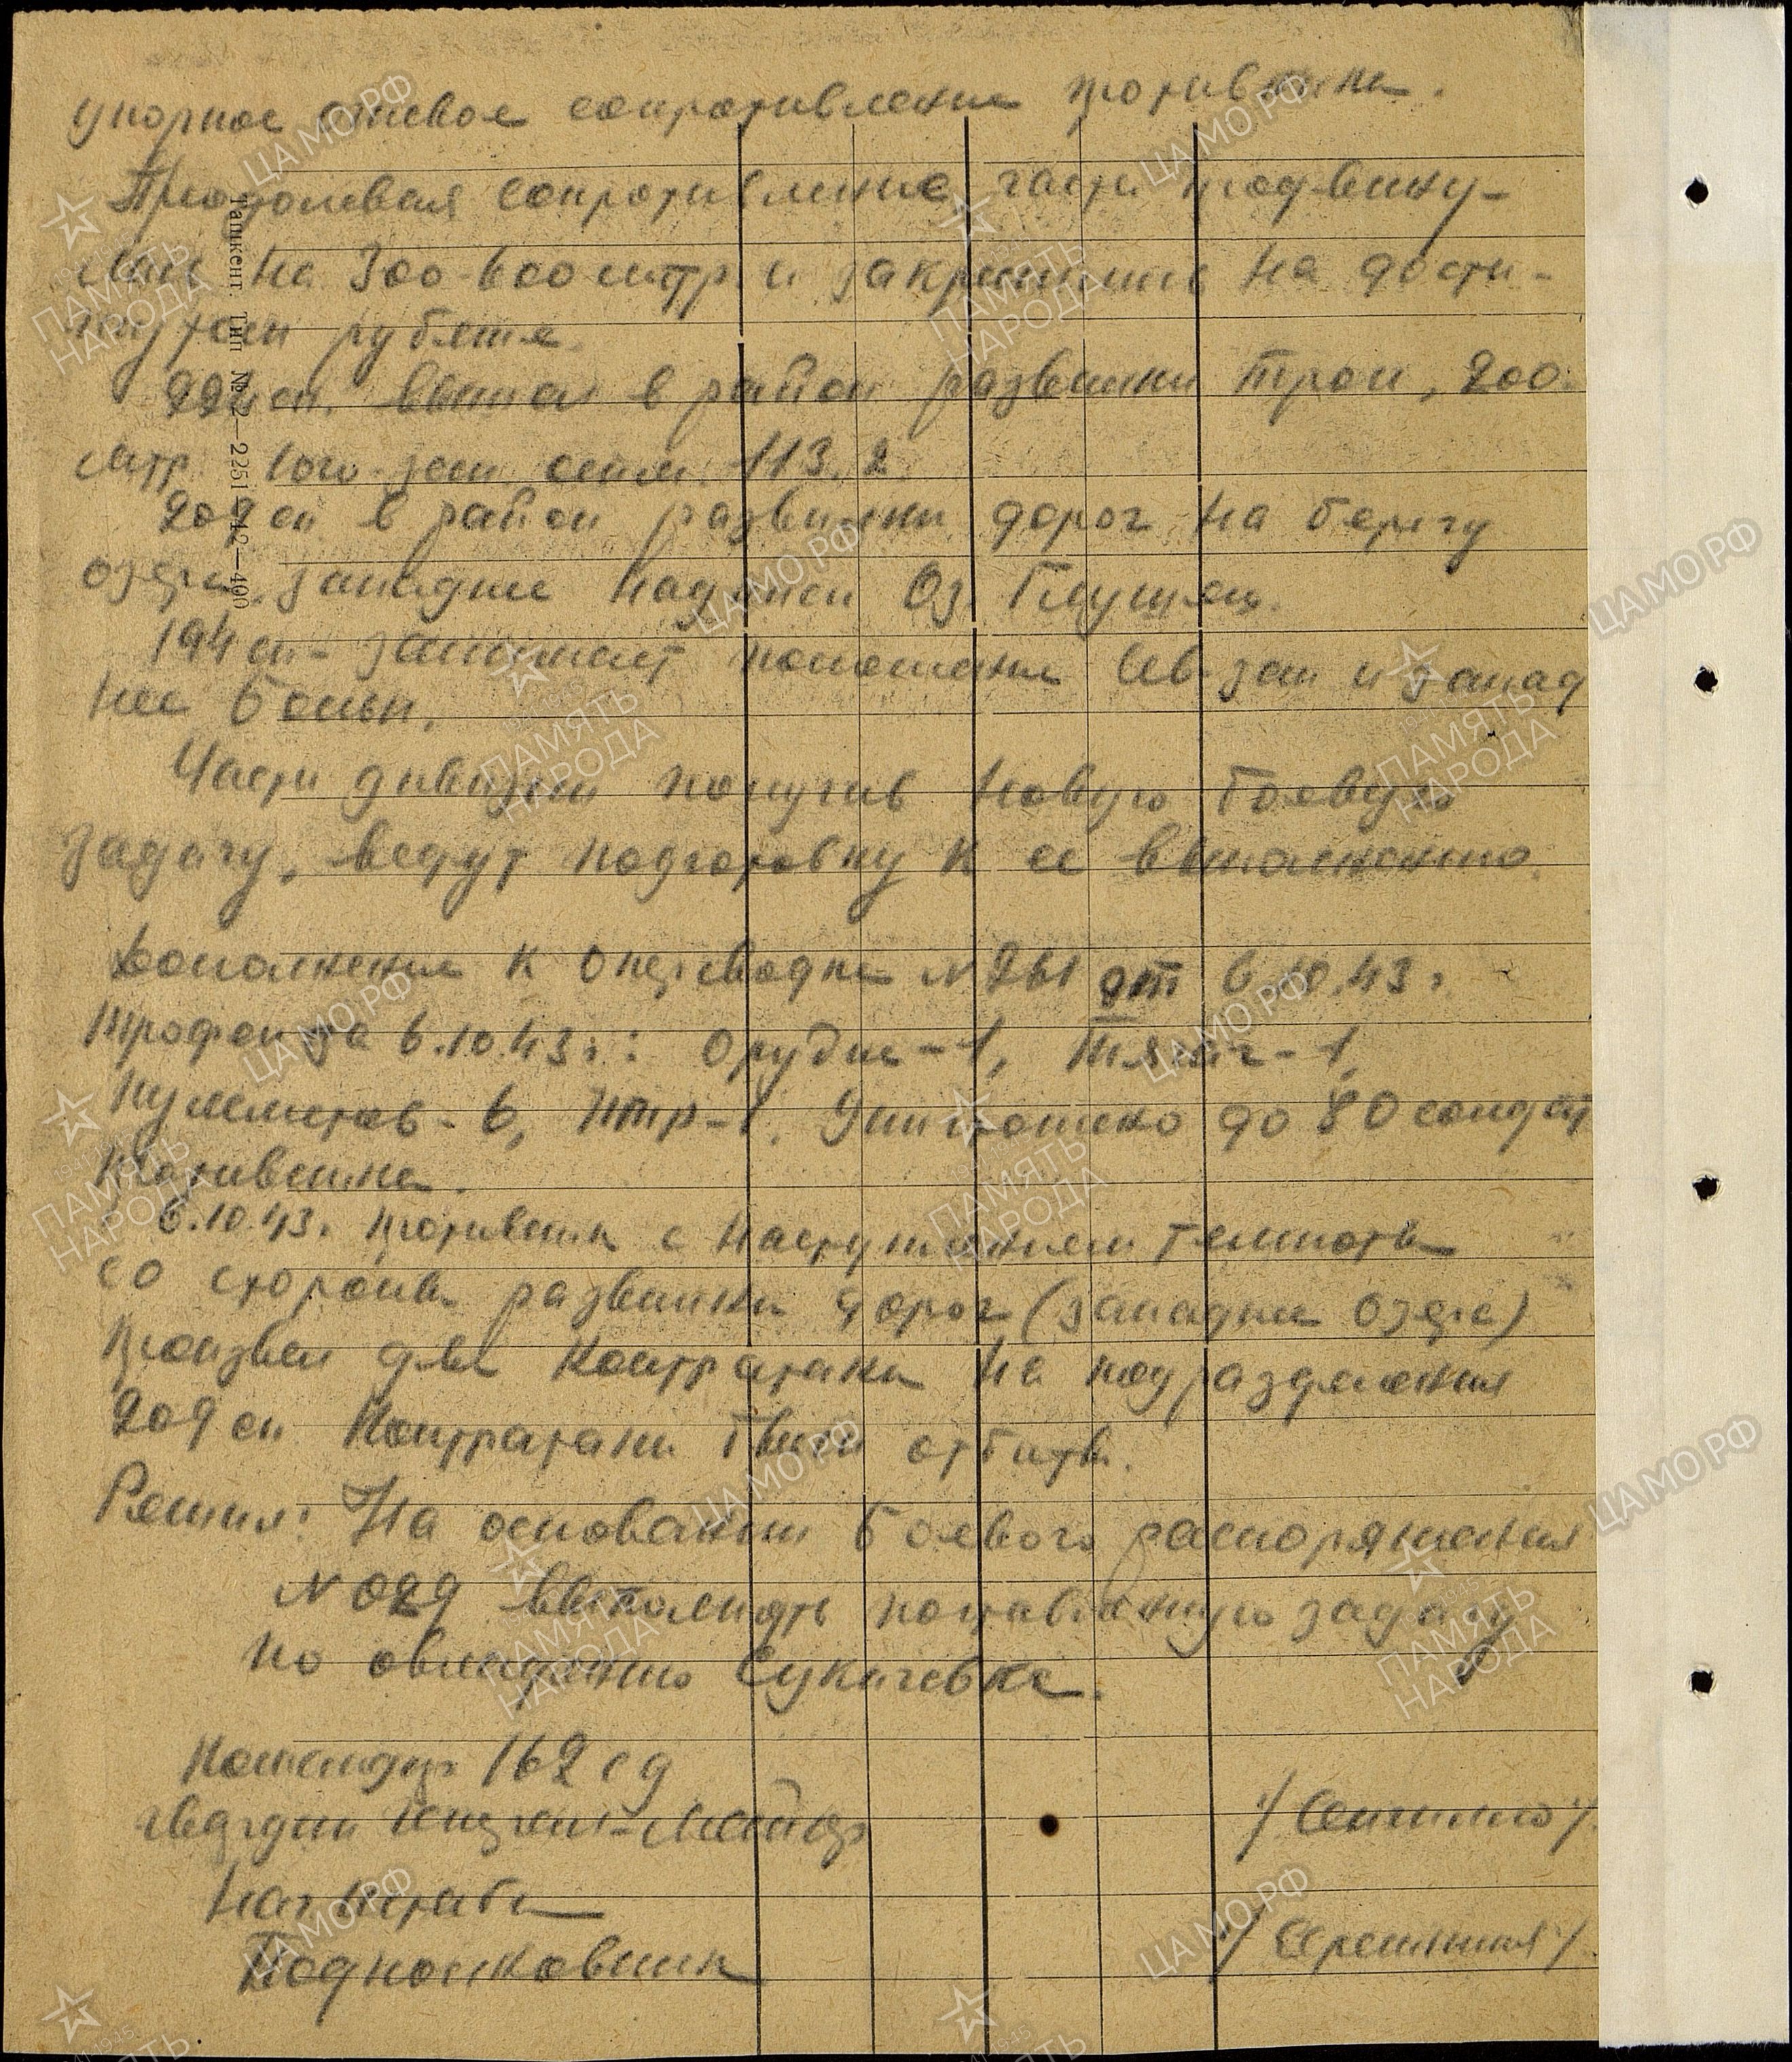 упорное огневое сопротивление противника.
Преодолевая сопротивление, части продвину-
лись на 300-600 метр. и закрепились на дости-
гнутом рубеже.
224 сп. вышел в район развилки троп, 200
мтр. юго-зап. отм. 113.2
209 сп в район развилки дорог на берегу
озера, западнее надписи Оз. Глушец.
194 сп - занимает положение сев-зап и запад
нее
Части дивизии получив новую боевую
задачу, ведут подготовку к ее выполнению.
Дополнение к Оперсводке №261 от 6.10.43 г.
Трофеи за 6.10.43 г.: Орудие-1, Тягач-1,
пулеметов-6, ПТР-1. Уничтожено до 80 солдат
противника.
6.10.43 г. противник с наступлением темноты
со стороны развилки дорог (западнее озера)
произвел две контратаки на подразделения
209 сп. Контратаки были отбиты.
Решил: На основании боевого распоряжения
№029 выполнять поставленную задачу
по овладению Сукачевка.
Командир 162 сд
гвардии генерал-майор /Сенчилло/
Нач штаба
Подполковник
Ташкент. Тип № 2—2251—42—400
ЦАМО.РФ
ПАМЯТЬ
НАРОДА